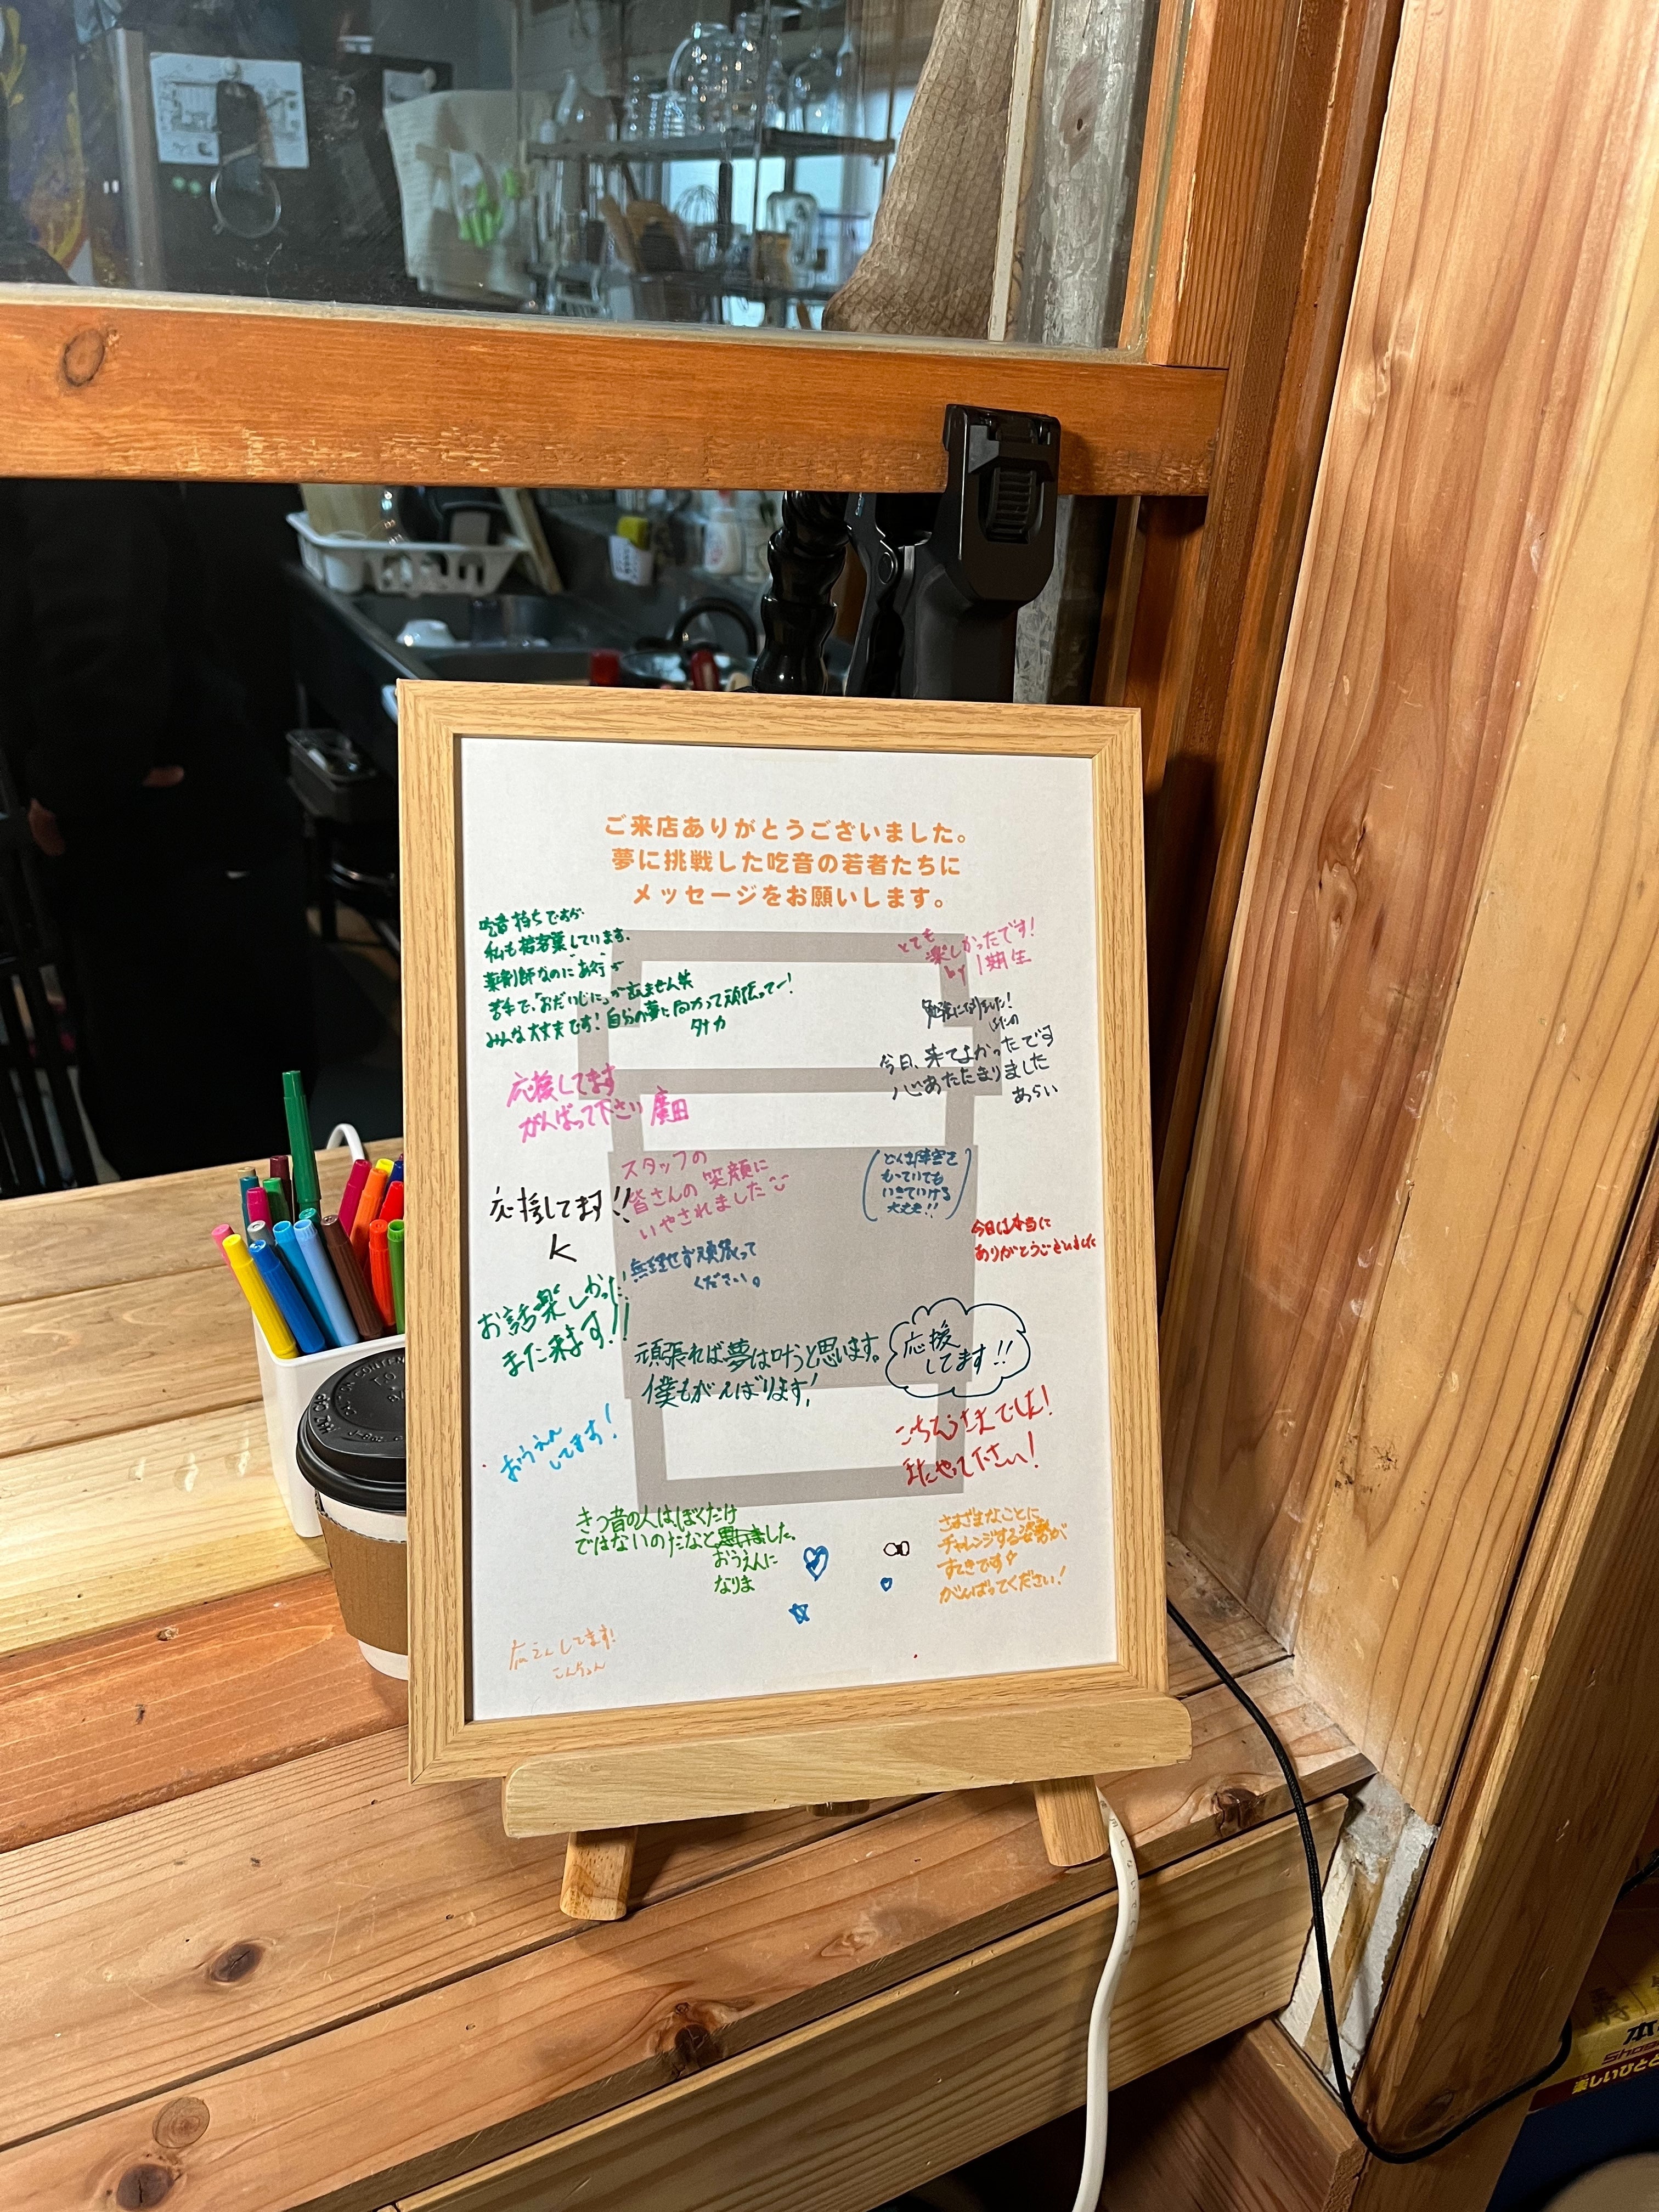 ご来店ありがとうございました。
夢に挑戦した吃音の若者たちに
メッセージをお願いします。
吃音持ちですが
私も接客業しています。
薬剤師なのにあ行が
苦手で、「おだいじに」が言えません笑
みんな大丈夫です!自分の夢に向かって頑張ってー!
タナカ
とても
楽しかったです!
by 1期生
勉強になりました!
今日、来てよかったです
心あたたまりました
あらい
応援してます
がんばって下さい 廣田
スタッフの
皆さんの笑顔に
いやされました
どんな障害を
もっていても
いきていける
大丈夫!!
応援してます!!
K
今日は本当に
ありがとうございました
無理せず頑張って
ください。
お話楽しかった!
また来ます!!
頑張れば夢は叶うと思います。
僕もがんばります!
応援
してます!!
おうえん
してます!
ごちそうさまでした!
またやって下さい!
きつ音の人は、ぼくだけ
ではないのだなと
した。
おうえんに
なりま
さまざまなことに
チャレンジする姿勢が
すてきです
がんばってください!
応えんしてます!
本
楽しいひとと